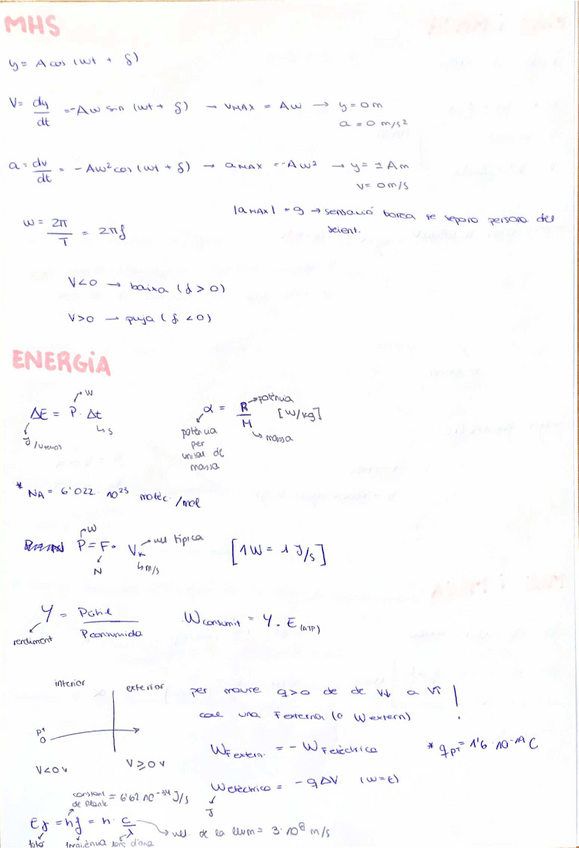 MHS
y = A cos (wt + δ)
V = dy/dt = -Aw sin (wt + δ) → VMAX = Aw → y = 0 m
a = 0 m/s²
a = dv/dt = -Aw² cos (wt + δ) → aMAX = -Aw² → y = ± A m
v = 0 m/s
w = 2π/T = 2πf
|aMAX| = g → sensació barca se separa persona del
seient.
V<0 → baixa (δ > 0)
V>0 → puja (δ < 0)
ENERGÍA
W
ΔE = P · Δt
J
s
α = P/M [W/kg]
potència
massa
potència
per
unitat de
massa
* NA = 6'022 · 10²³ molèc./mol
W
P = F · V
vel típica
N
m/s
[1W = 1 J/s]
Y = Pútil / Pconsumida
rendiment
Wconsumit = Y · E (ATP)
interior
exterior
V<0 V
V≥0 V
per moure q>0 de de V↓ a V↑
cal una Fexterna (o Wextern)!
WFextern = - WFelèctrica
* qp+ = 1'6 · 10⁻¹⁹ C
Welèctrica = - qΔV (W=E)
J
constant
de Plank
Ef = hf = h · c/λ
fotó
vel. de la llum = 3 · 10⁸ m/s